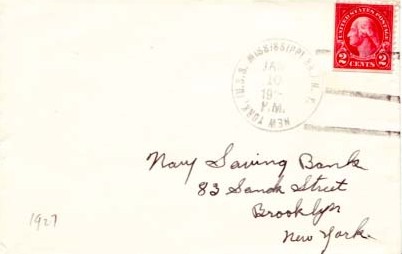 UNITED STATES POSTAGE
2 CENTS 2
NEW YORK, U.S.S. MISSISSIPPI
JAN
10
P.M.
Navy Saving Bank
83 Sands Street
Brooklyn
New York.
1927